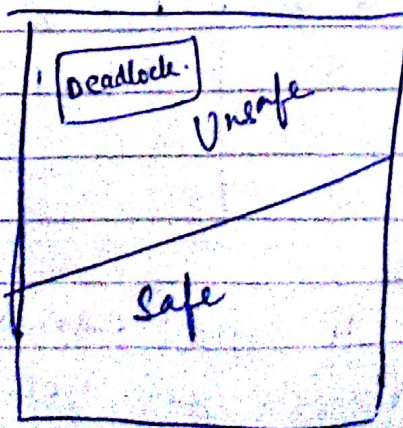 Deadlock.
Unsafe
Safe